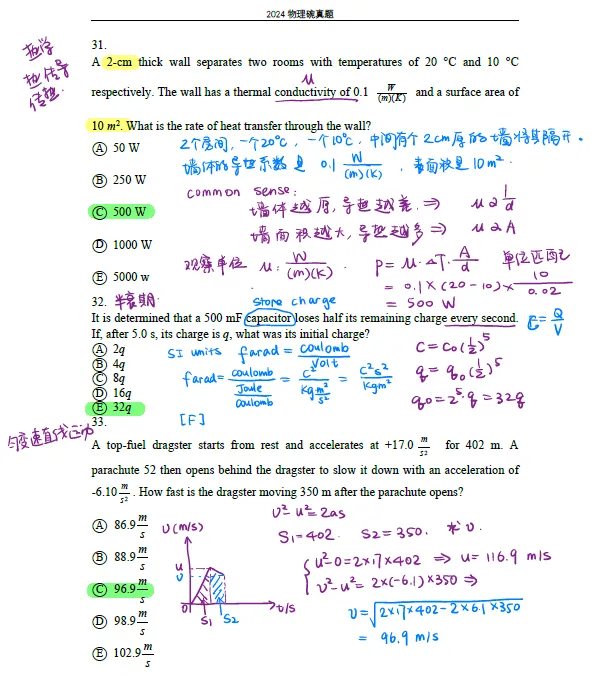 2024 物理碗真题
31.
热学
热传导
传热
A 2-cm thick wall separates two rooms with temperatures of 20 °C and 10 °C
μ
respectively. The wall has a thermal conductivity of 0.1 W/(m)(K) and a surface area of
10 m². What is the rate of heat transfer through the wall?
2个房间,一个20℃,一个10℃,中间有个2cm厚的墙将其隔开.
Ⓐ 50 W
墙体的导热系数是 0.1 W/(m)(K) , 表面积是10m².
Ⓑ 250 W
common sense:
Ⓒ 500 W
墙体越厚,导热越差 ⇒ μ∝1/d
Ⓓ 1000 W
墙面积越大,导热越多 ⇒ μ∝A
观察单位 μ: W/(m)(K) . P=μ·ΔT·A/d 单位匹配
Ⓔ 5000 w
= 0.1×(20-10)×10/0.02
= 500 W
32. 半衰期
store charge
It is determined that a 500 mF capacitor loses half its remaining charge every second.
C=Q/V
If, after 5.0 s, its charge is q, what was its initial charge?
Ⓐ 2q
SI units farad = coulomb/Volt
C=C₀(½)⁵
Ⓑ 4q
Ⓒ 8q
farad= coulomb/(Joule/coulomb) = C²/(kg·m²/s²) = C²s²/kgm²
q=q₀(½)⁵
Ⓓ 16q
q₀=2⁵·q=32q
Ⓔ 32q
[F]
33.
匀变速直线运动
A top-fuel dragster starts from rest and accelerates at +17.0 m/s² for 402 m. A
parachute 52 then opens behind the dragster to slow it down with an acceleration of
-6.10 m/s². How fast is the dragster moving 350 m after the parachute opens?
v²-u²=2as
Ⓐ 86.9 m/s
v(m/s)
S₁=402. S₂=350. 求v.
Ⓑ 88.9 m/s
u
v
u²-0=2×17×402 ⇒ u=116.9 m/s
Ⓒ 96.9 m/s
v²-u²=2×(-6.1)×350 ⇒
0
t/s
S₁ S₂
v=√2×17×402-2×6.1×350
Ⓓ 98.9 m/s
= 96.9 m/s
Ⓔ 102.9 m/s